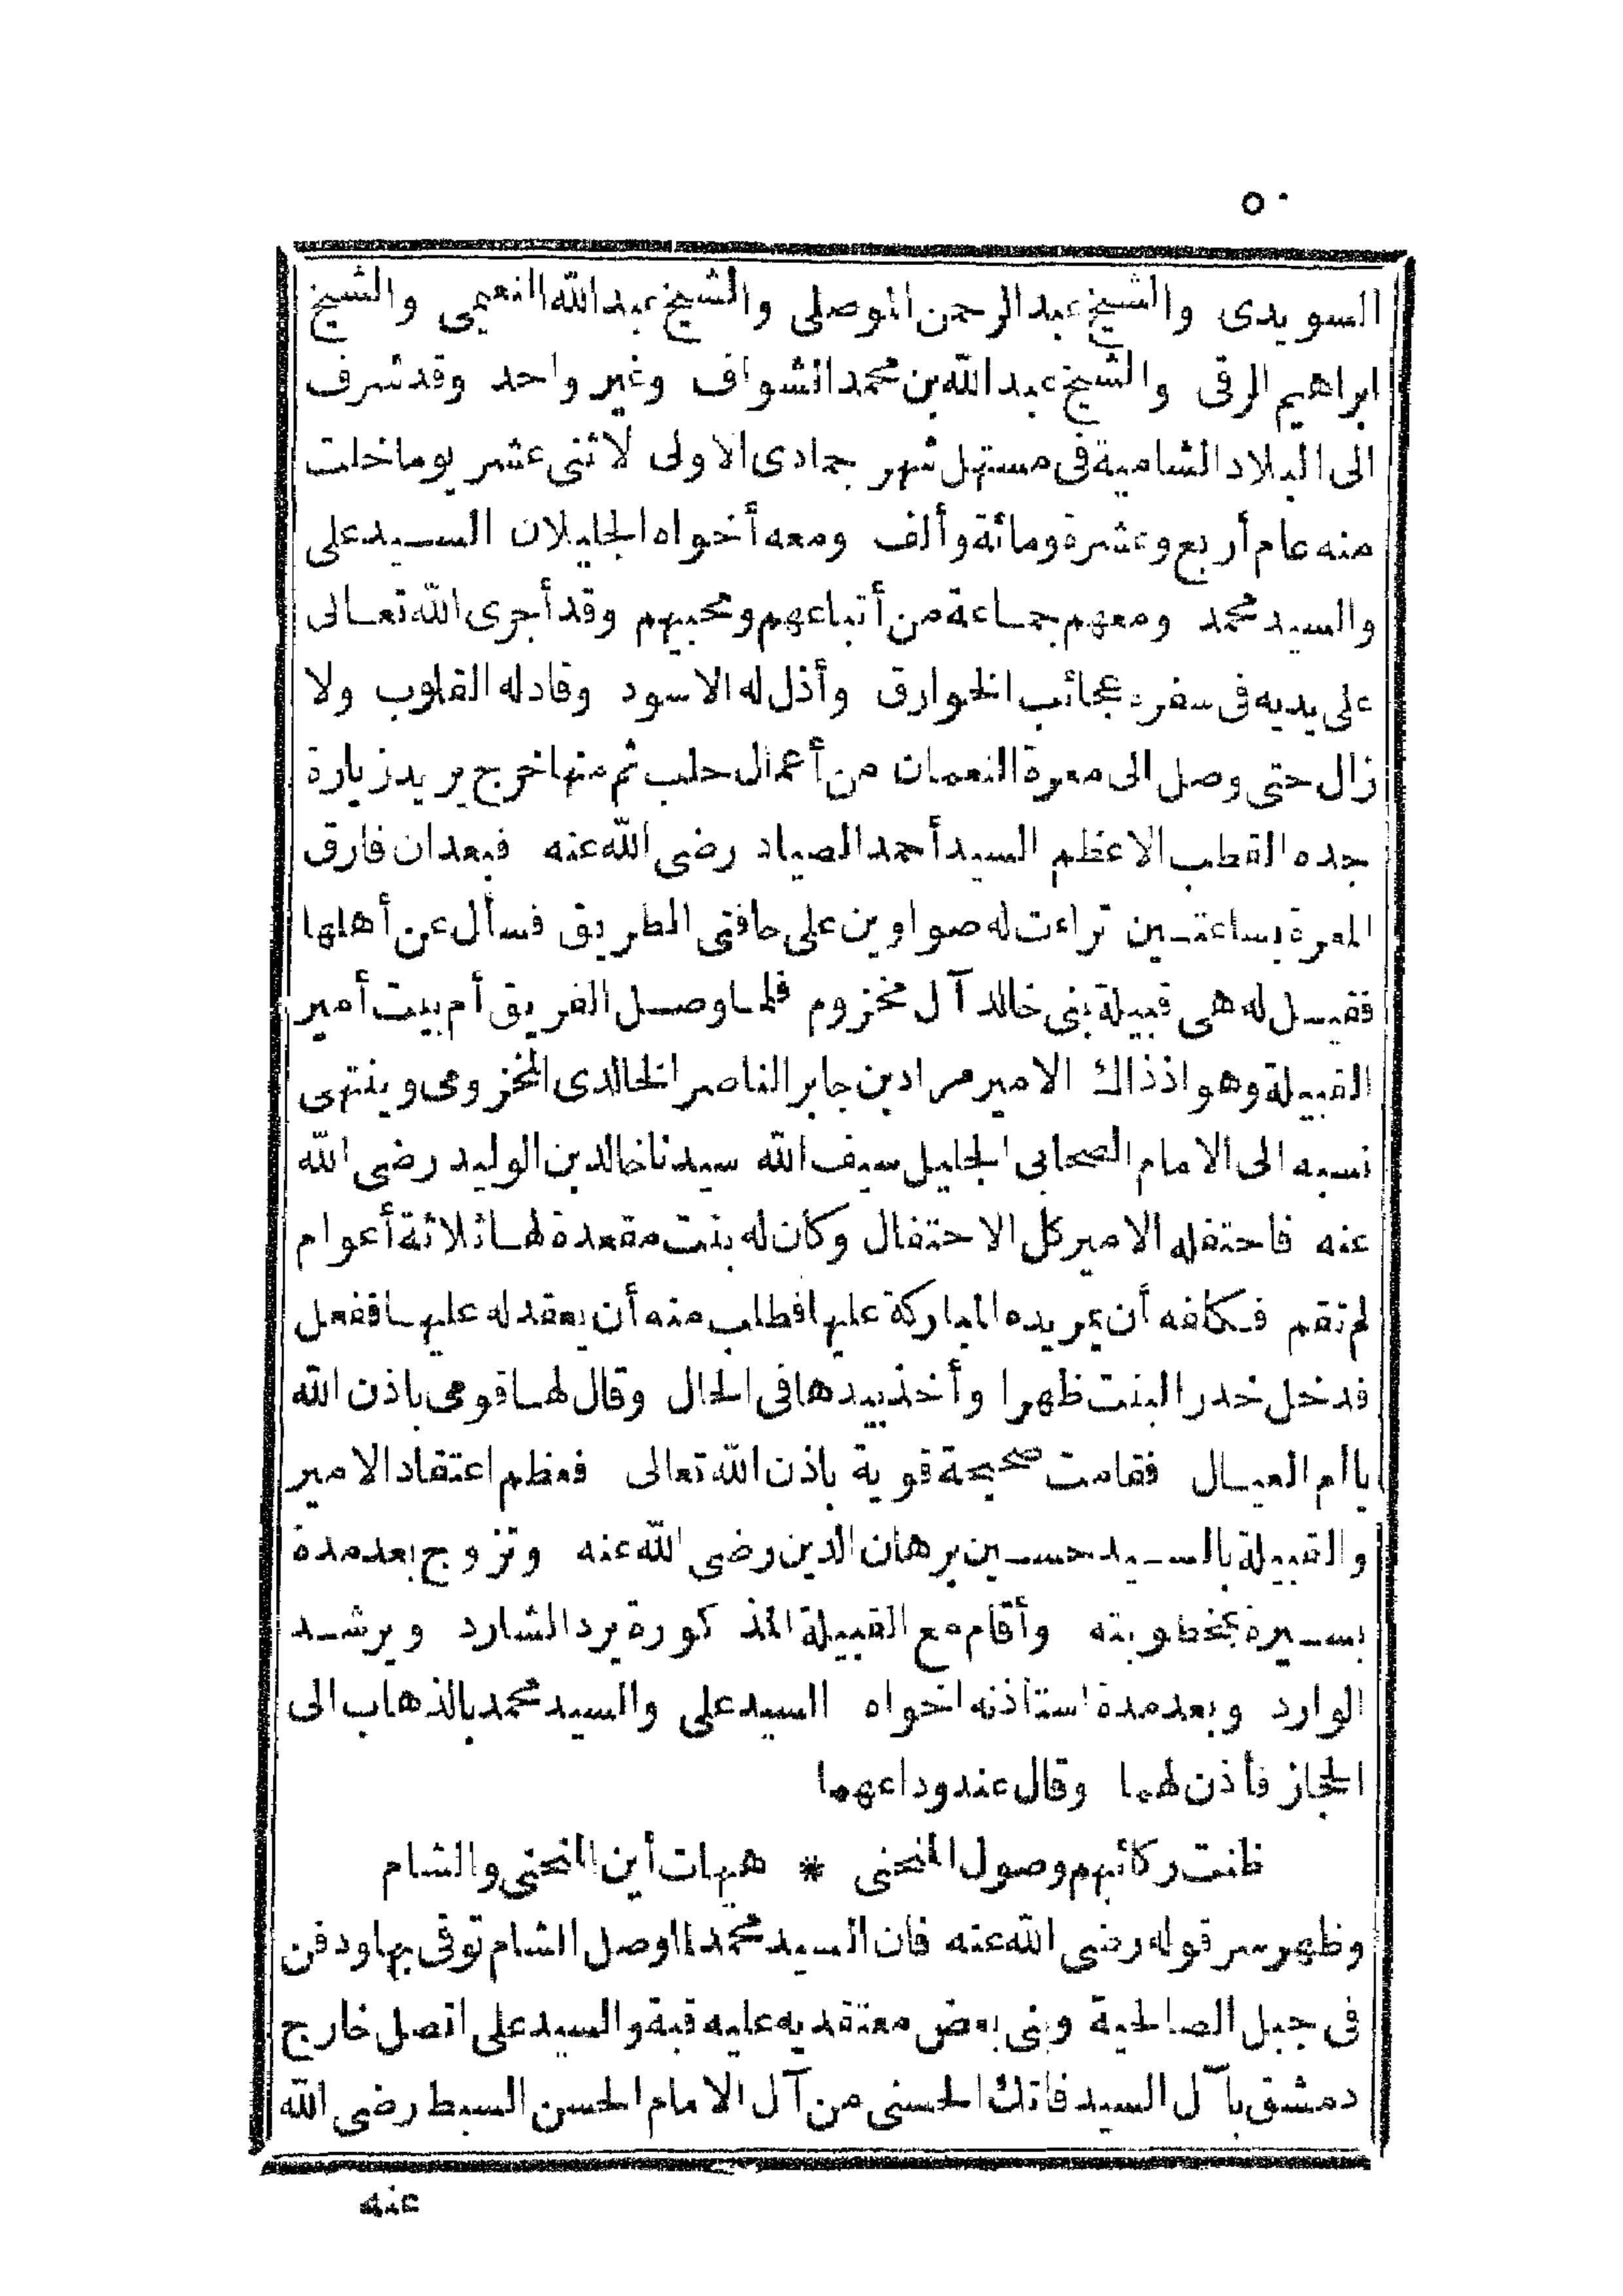 ٥٠
السويدى والشيخ عبد الرحمن الموصلى والشيخ عبد الله النعيمى والشيخ
ابراهيم الرقى والشيخ عبد الله بن محمد الشواف وغير واحد وقد شرف
الى البلاد الشامية فى مستهل شهر جمادى الاولى لاثنى عشر يوما خلت
منه عام أربع وعشرة ومائة وألف ومعه أخواه الجليلان السيد على
والسيد محمد ومعهم جماعة من أتباعهم ومحبيهم وقد أجرى الله تعالى
على يديه فى سفره عجائب الخوارق وأذل له الاسود وقاد له القلوب ولا
زال حتى وصل الى معرة النعمان من أعمال حلب ثم منها خرج يريد زيارة
جده القطب الاعظم السيد أحمد الصياد رضى الله عنه فبعد ان فارق
المعرة بساعتين تراءت له صواوين على حافتى الطريق فسأل عن أهلها
فقيل له هى قبيلة بنى خالد آل مخزوم فلما وصل الفريق أم بيت أمير
القبيلة وهو اذ ذاك الامير مراد بن جابر الناصر الخالدى المخزومى وينتهى
نسبه الى الامام الصحابى الجليل سيف الله سيدنا خالد بن الوليد رضى الله
عنه فاحتفله الامير كل الاحتفال وكان له بنت مقعدة لها ثلاثة أعوام
لم تقم فكلفه أن يمر يده المباركة عليها فطلب منه أن يعقد له عليها ففعل
فدخل خدر البنت ظهرا وأخذ بيدها فى الحال وقال لها قومى باذن الله
يا أم العيال فقامت صحيحة قوية باذن الله تعالى فعظم اعتقاد الامير
والقبيلة بالسيد حسين برهان الدين رضى الله عنه وتزوج بعد مدة
يسيرة بمخطوبته وأقام مع القبيلة المذكورة يرد الشارد ويرشد
الوارد وبعد مدة استاذنه اخواه السيد على والسيد محمد بالذهاب الى
الحجاز فأذن لهما وقال عند وداعهما
ظنت ركائبهم وصول المنحنى * هيهات أين المنحنى والشام
وظهر سر قوله رضى الله عنه فان السيد محمد لما وصل الشام توفى بها ودفن
فى جبل الصالحية وبنى بعض معتقديه عليه قبة والسيد على اتصل خارج
دمشق بآل السيد فاتك الحسنى من آل الامام الحسن السبط رضى الله
عنه